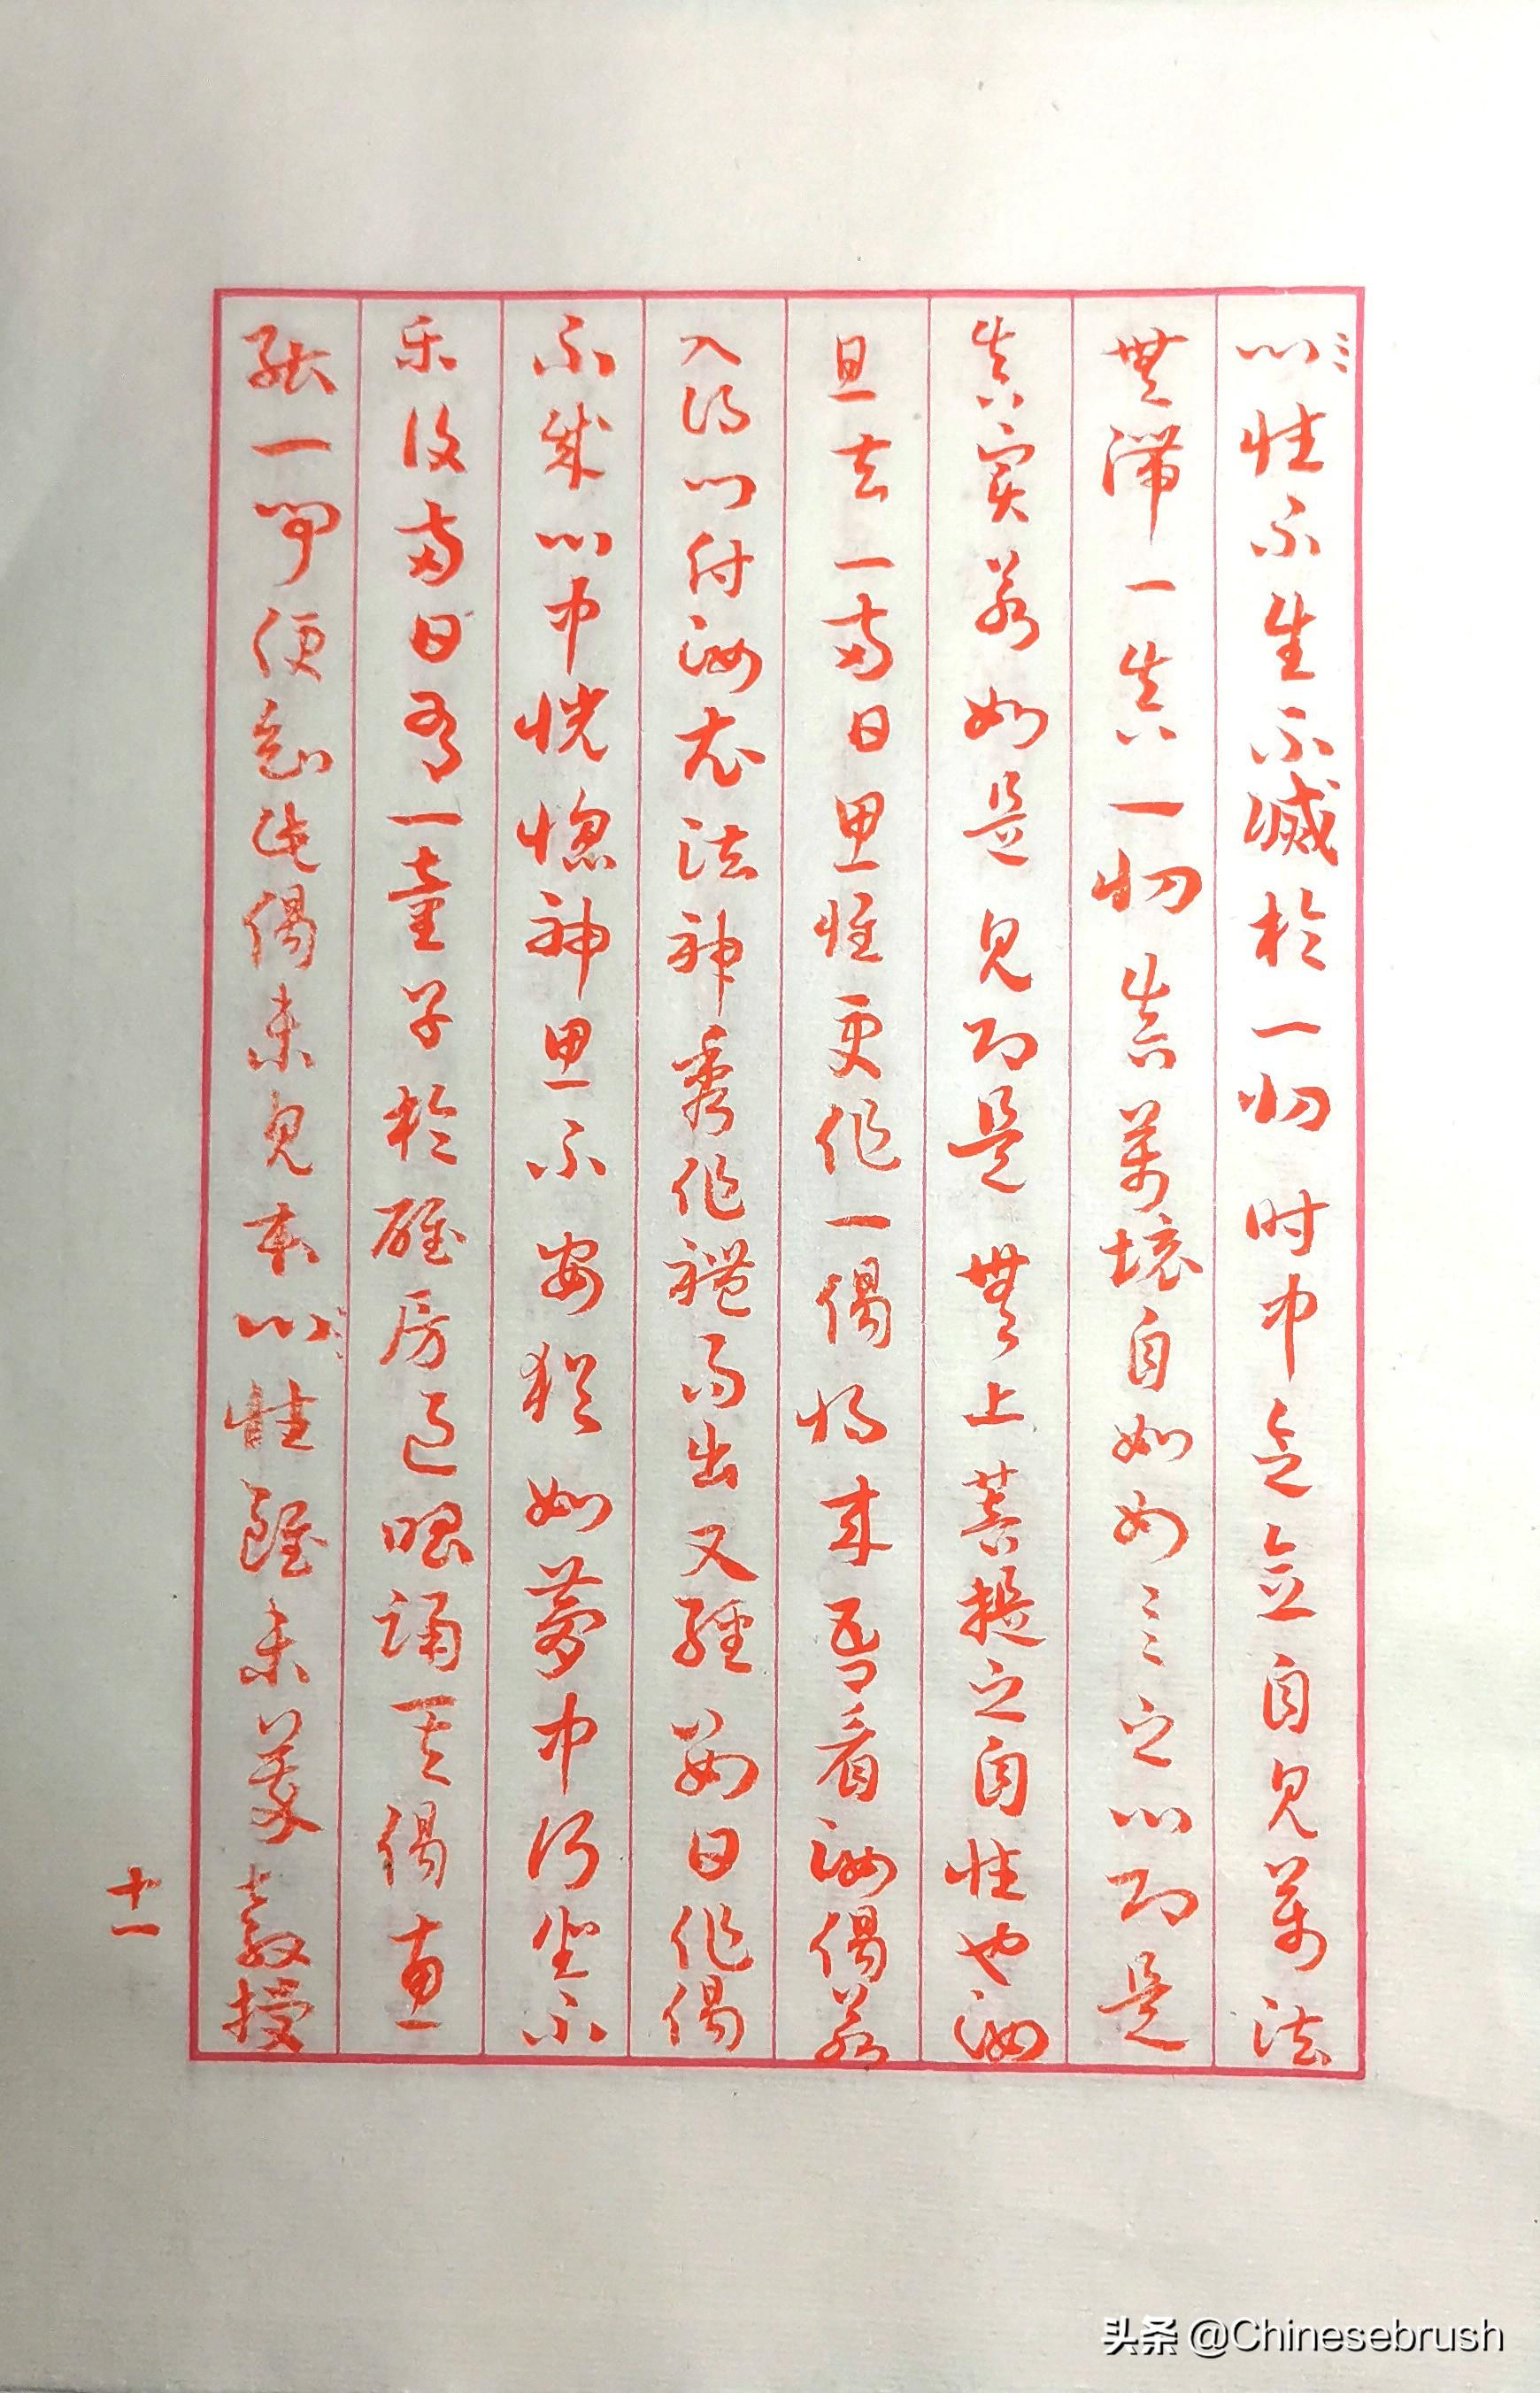 心性不生不滅於一切时中念念自見萬法
無滯一真一切真萬境自如如〻〻之心即是
真實若如是見即是無上菩提之自性也汝
且去一兩日思惟更作一偈將来吾看汝偈若
入得門付汝衣法神秀作禮而出又經數日作偈
不成心中恍惚神思不安猶如夢中行坐不
乐復兩日有一童子於碓房過唱誦其偈惠
能一聞便知此偈未見本心性雖未蒙教授
十一
头条 @Chinesebrush